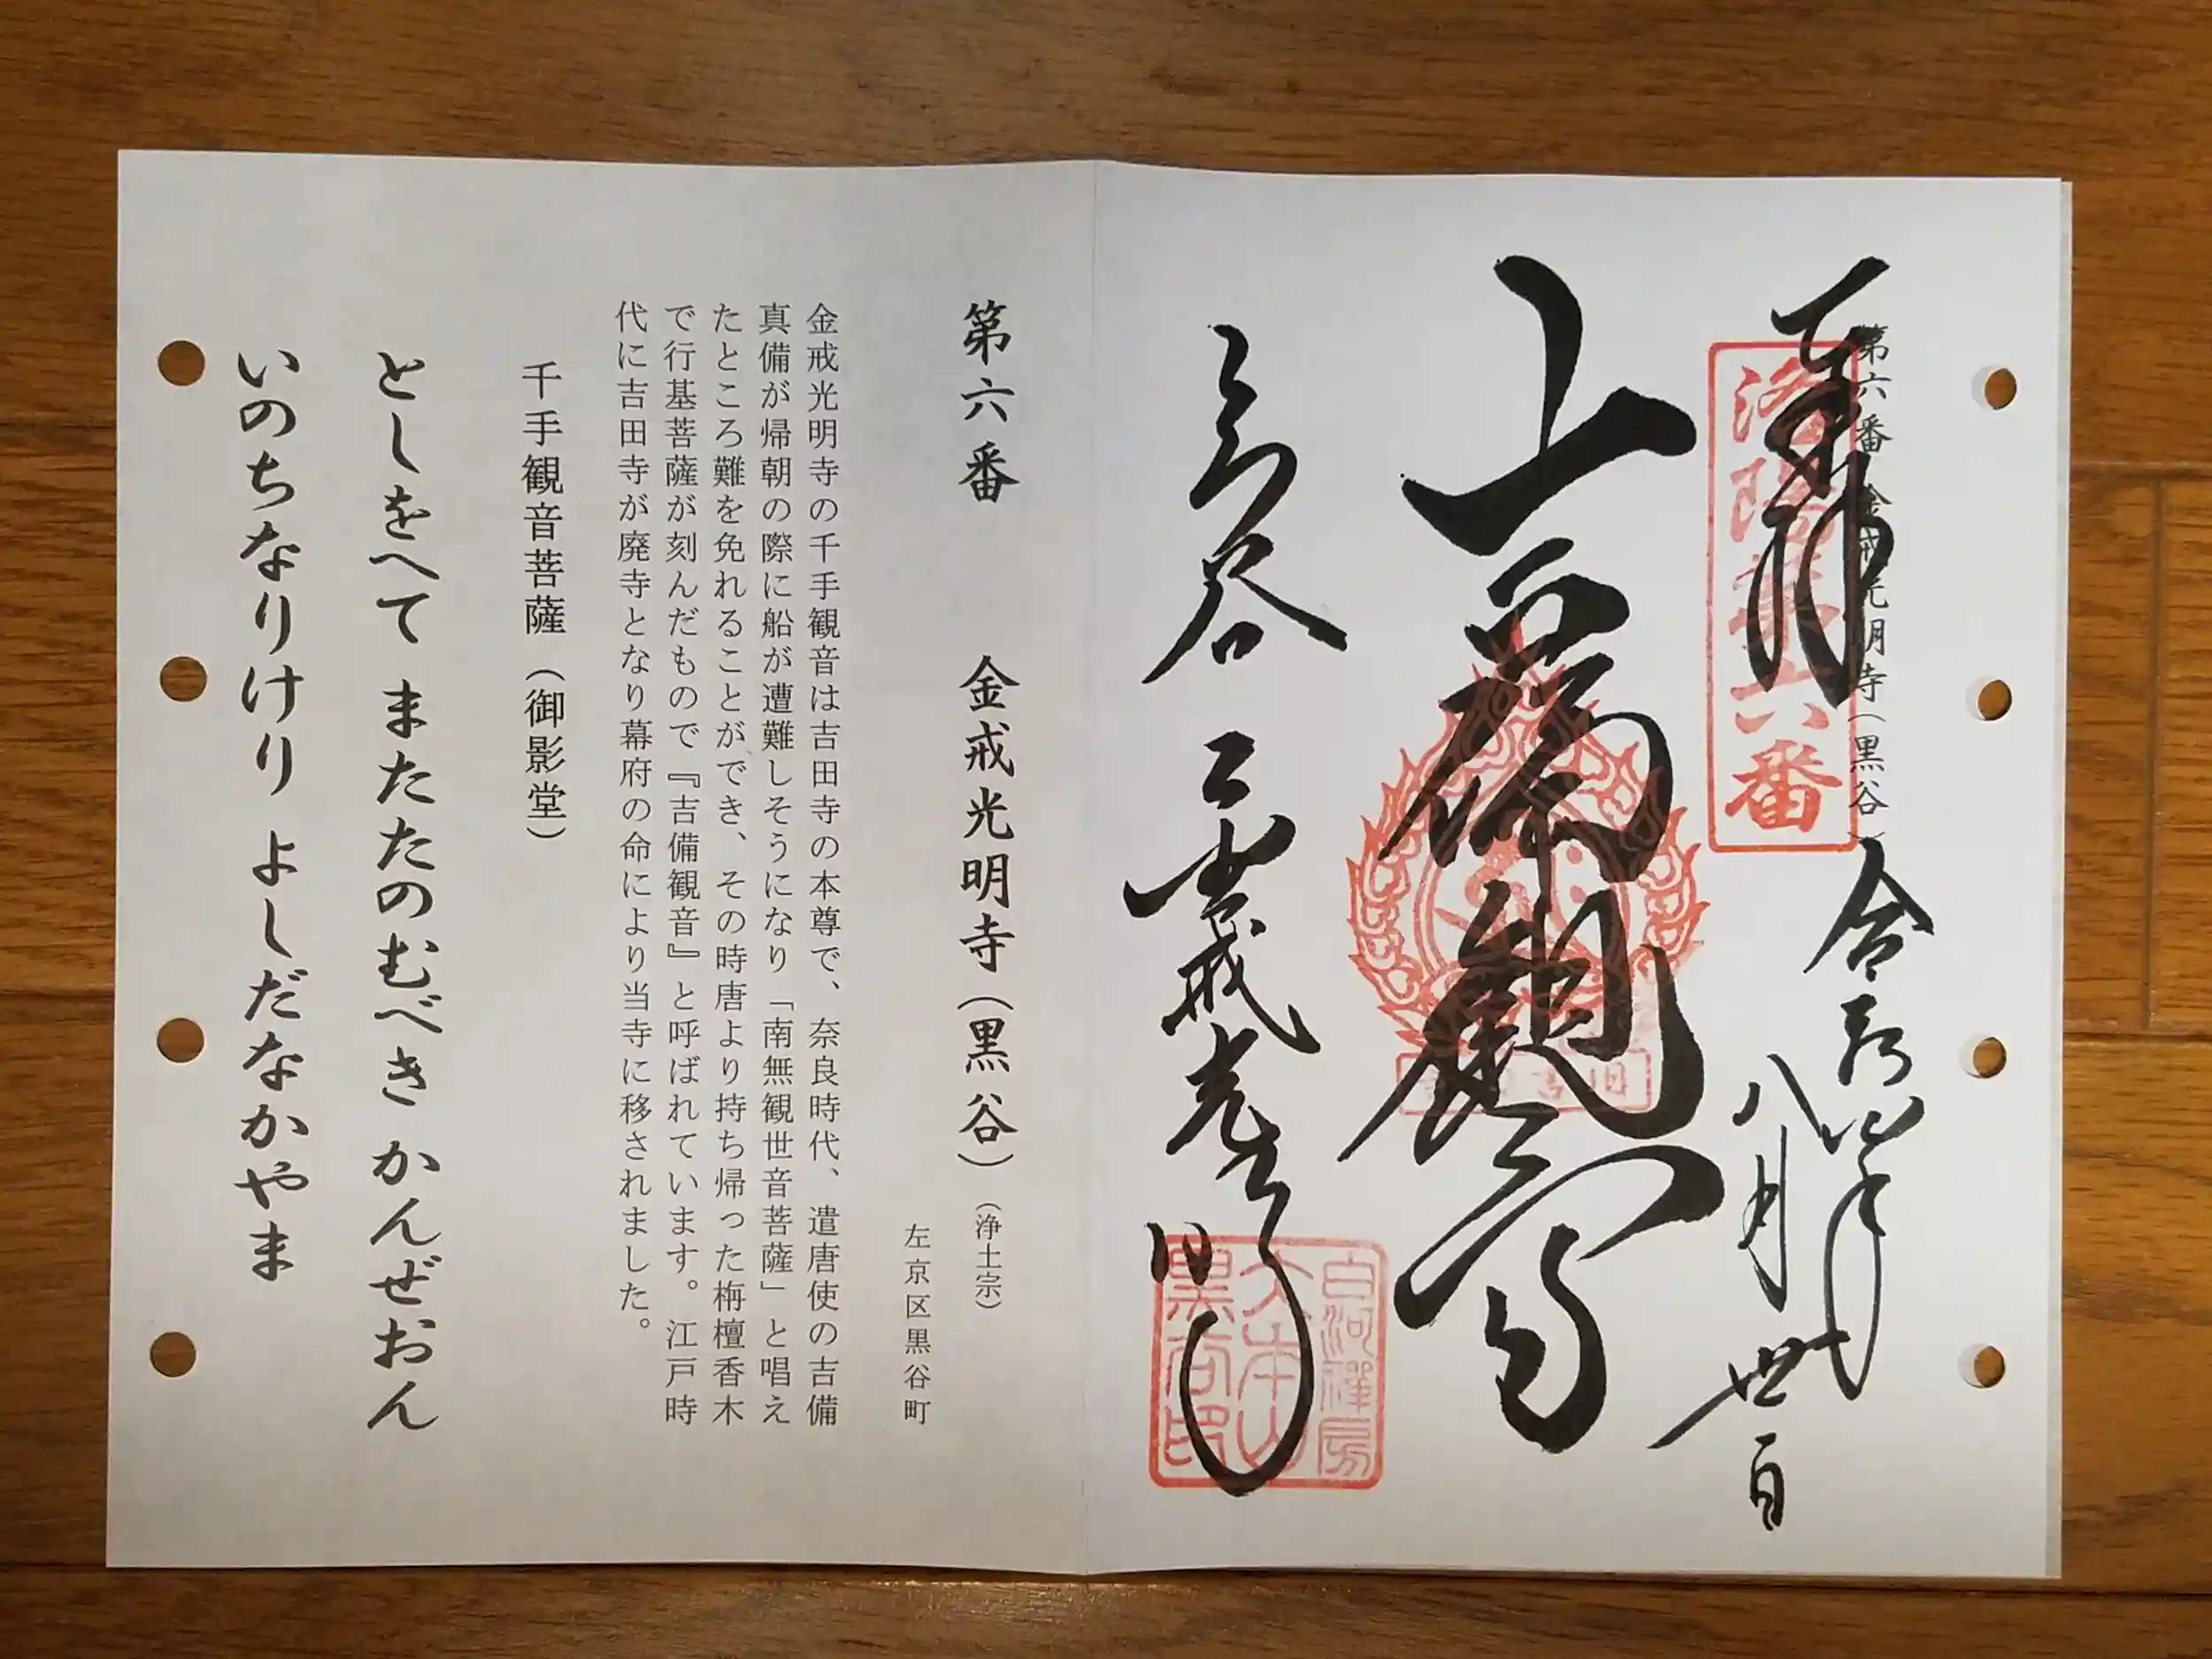 奉拝
第六番 金戒光明寺（黒谷）
洛陽第六番
令和四年
八月廿一日
吉備観音
黒谷 金戒光明寺
白河禅房
大本山
黒谷印
第六番 金戒光明寺（黒谷）（浄土宗）
左京区黒谷町
金戒光明寺の千手観音は吉田寺の本尊で、奈良時代、遣唐使の吉備
真備が帰朝の際に船が遭難しそうになり「南無観世音菩薩」と唱え
たところ難を免れることができ、その時唐より持ち帰った栴檀香木
で行基菩薩が刻んだもので『吉備観音』と呼ばれています。江戸時
代に吉田寺が廃寺となり幕府の命により当寺に移されました。
千手観音菩薩（御影堂）
としをへて またたのむべき かんぜおん
いのちなりけり よしだなかやま